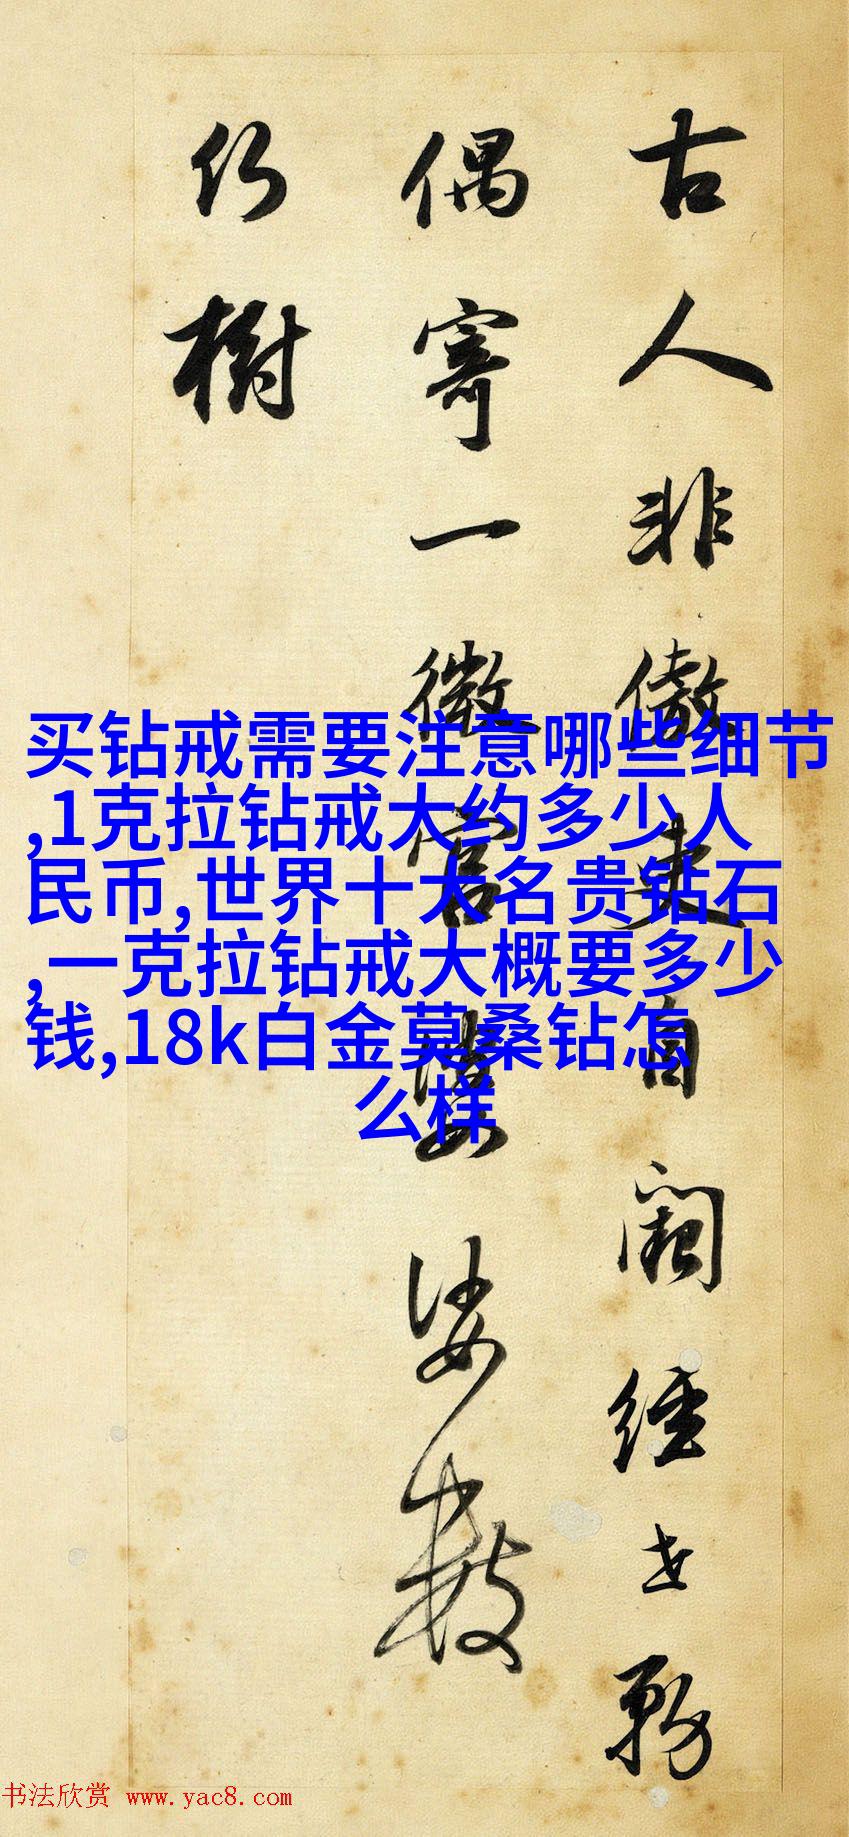 古人非傲吏自阙经世务
偶寄一微官婆娑数
行树
买钻戒需要注意哪些细节
,1克拉钻戒大约多少人
民币,世界十大名贵钻石
,一克拉钻戒大概要多少
钱,18k白金莫桑钻怎
么样
书法欣赏 www.yac8.com